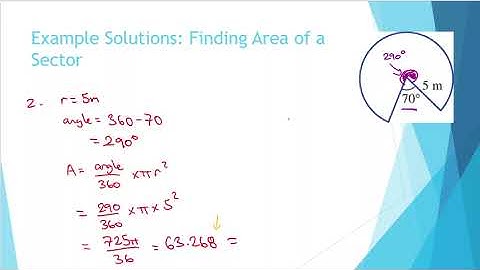 Example Solutions: Finding Area of a
Sector
290°
5 m
70°
2. r = 5m
angle = 360 - 70
= 290°
A = angle/360 × π r²
= 290/360 × π × 5²
= 725π/36 = 63.268 =